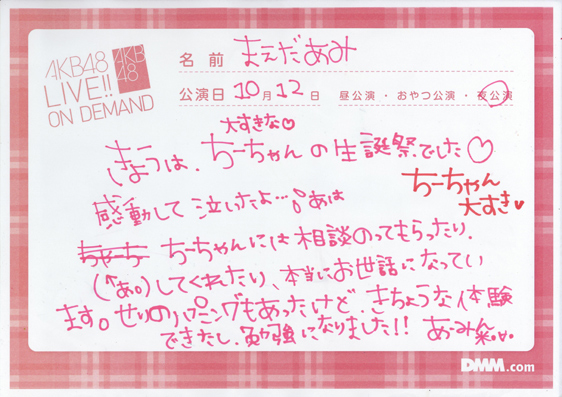 AKB48
LIVE!!
ON DEMAND
AKB
48
名前 まえだあみ
公演日 10月12日 昼公演・おやつ公演・夜公演
大すきな♡
きょうは、ちーちゃんの生誕祭でした♡
ちーちゃん
大すき♥
感動して泣いたよ…。あは
ちーちゃんには相談のってもらったり、
してくれたり、本当にお世話になってい
ます。せりのハプニングもあったけど、きちょうな体験
できたし、勉強になりました!! あーみん
DMM.com